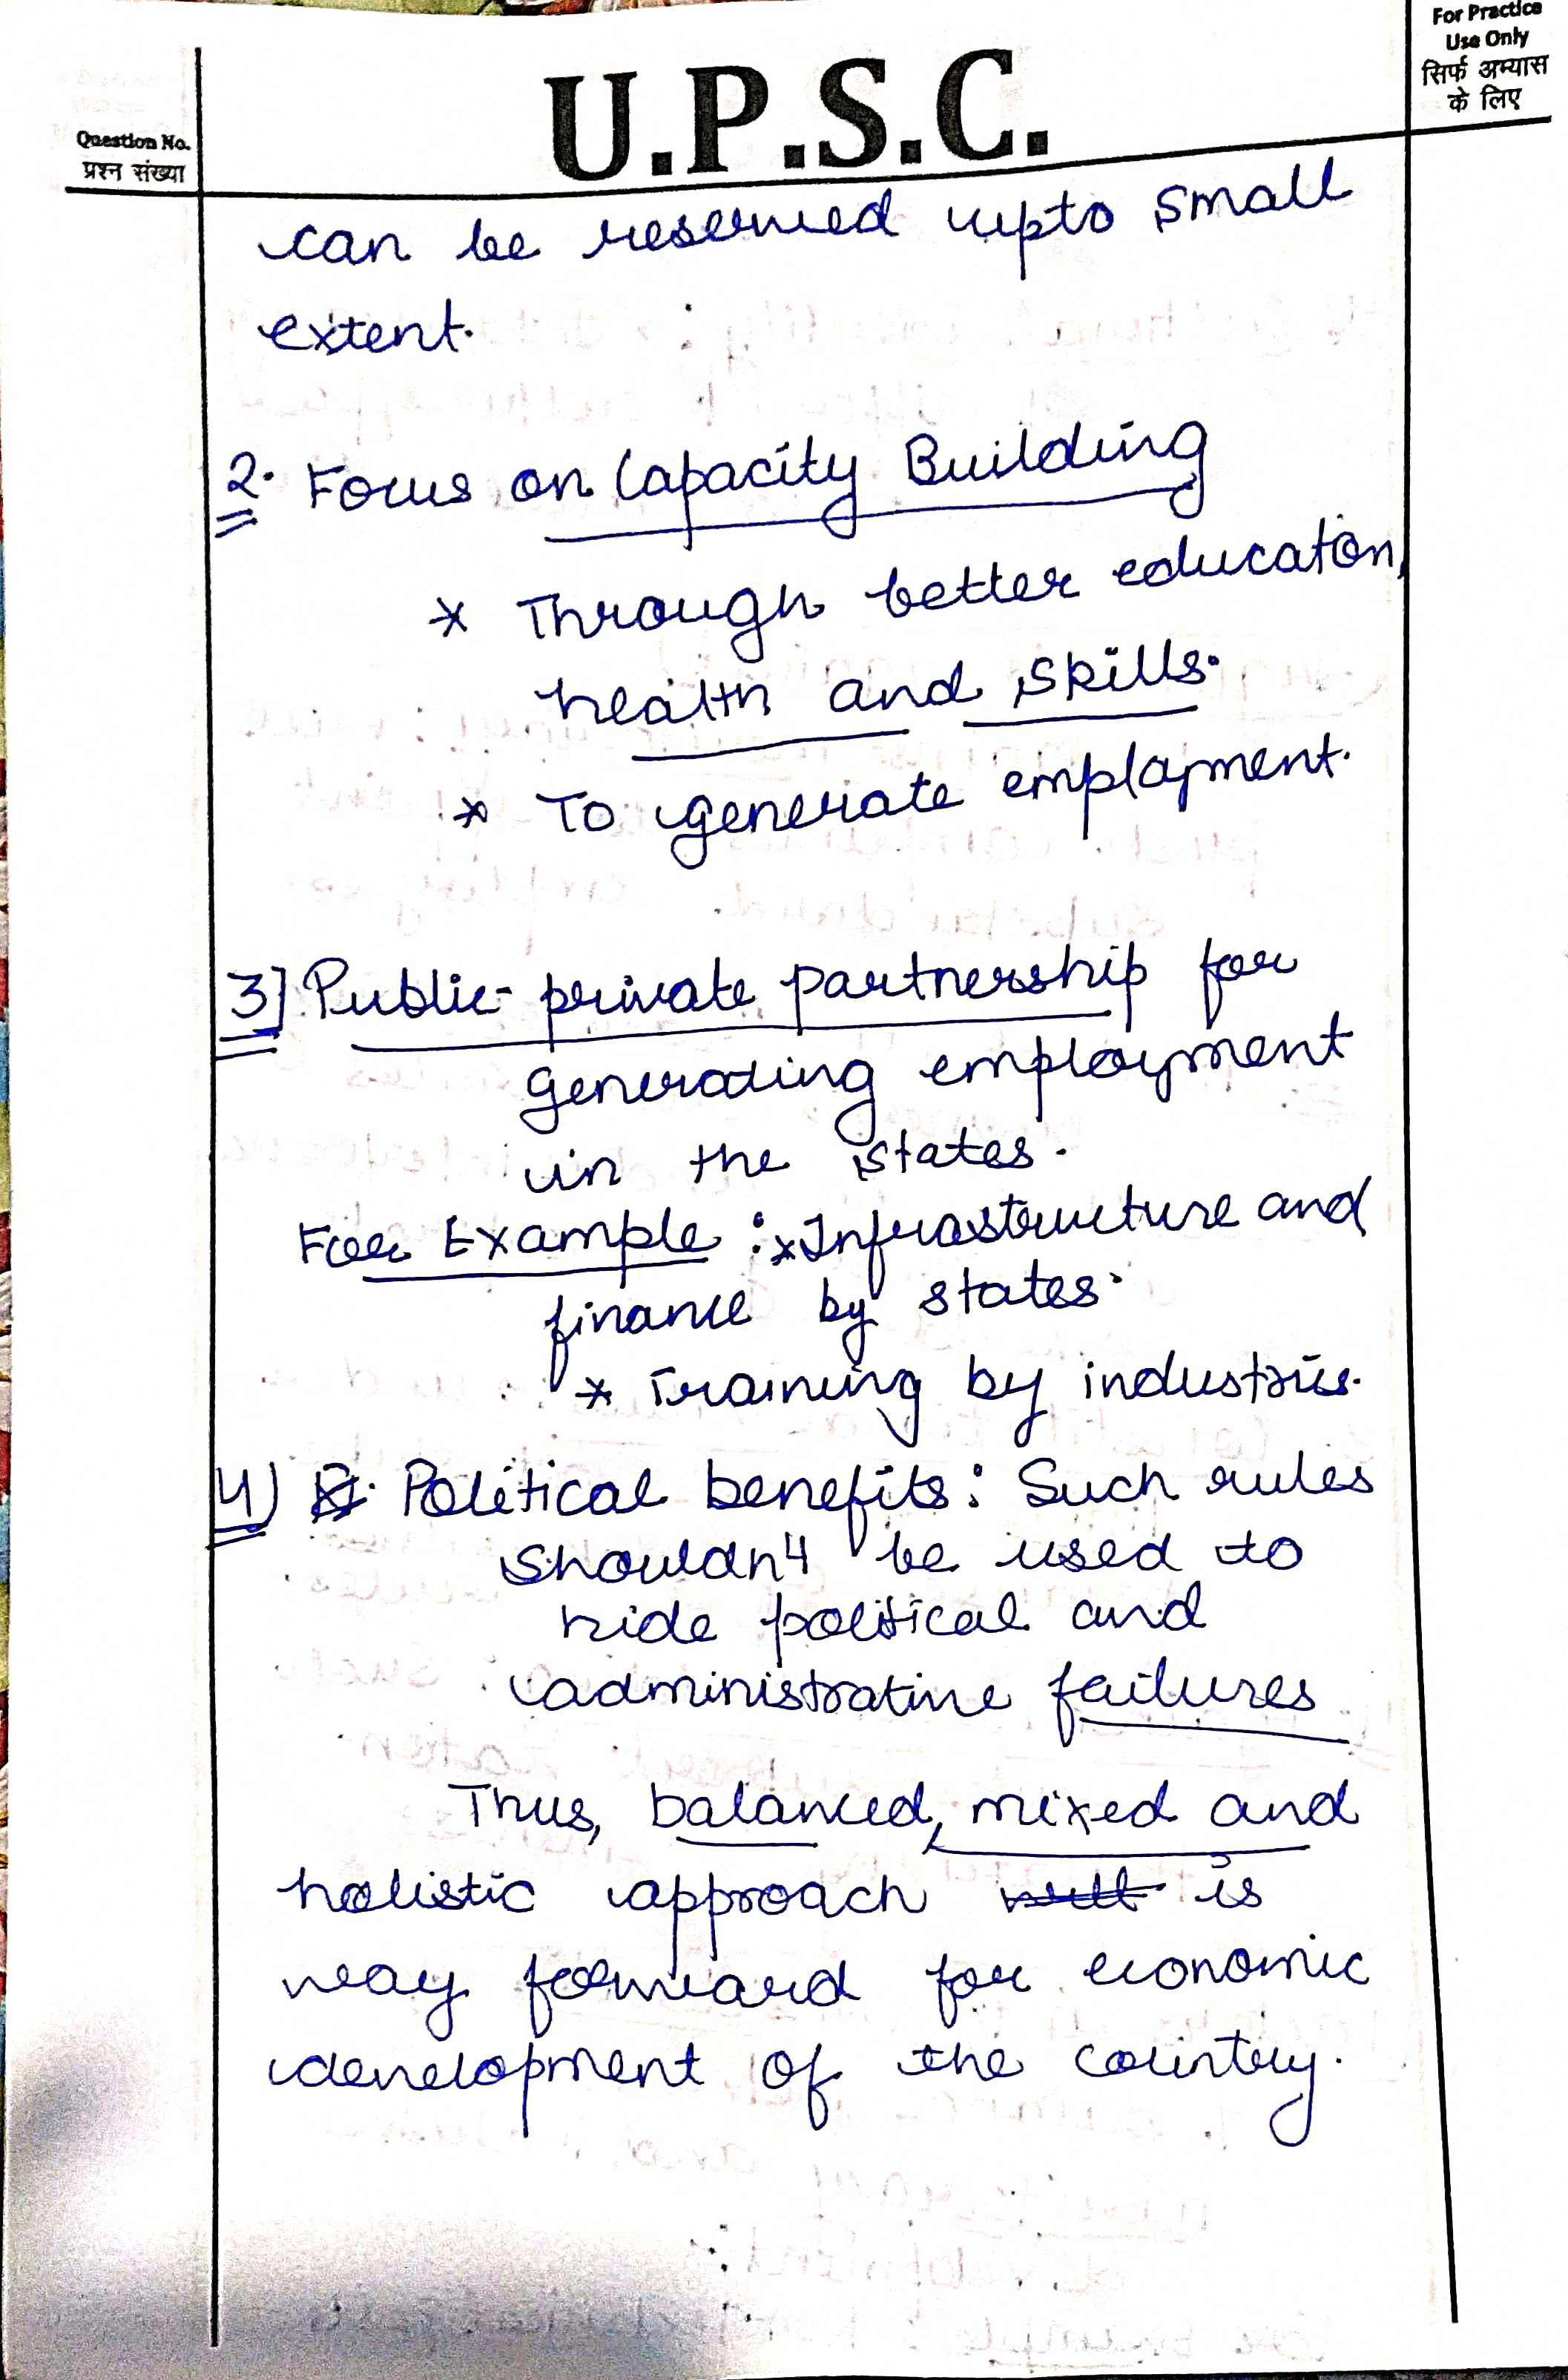 For Practice
Use Only
सिर्फ अभ्यास
के लिए
U.P.S.C.
Question No.
प्रश्न संख्या
can be reserved upto small
extent.
2. Focus on Capacity Building
* Through better educaton,
health and skills.
* To generate employment.
3] Public-private partnership for
generating employment
in the states.
For Example : * Infrastructure and
finance by states.
* Training by industries.
4) Political benefits: Such rules
shouldn't be used to
hide political and
administrative failures
Thus, balanced, mixed and
holistic approach will is
way forward for economic
development of the country.